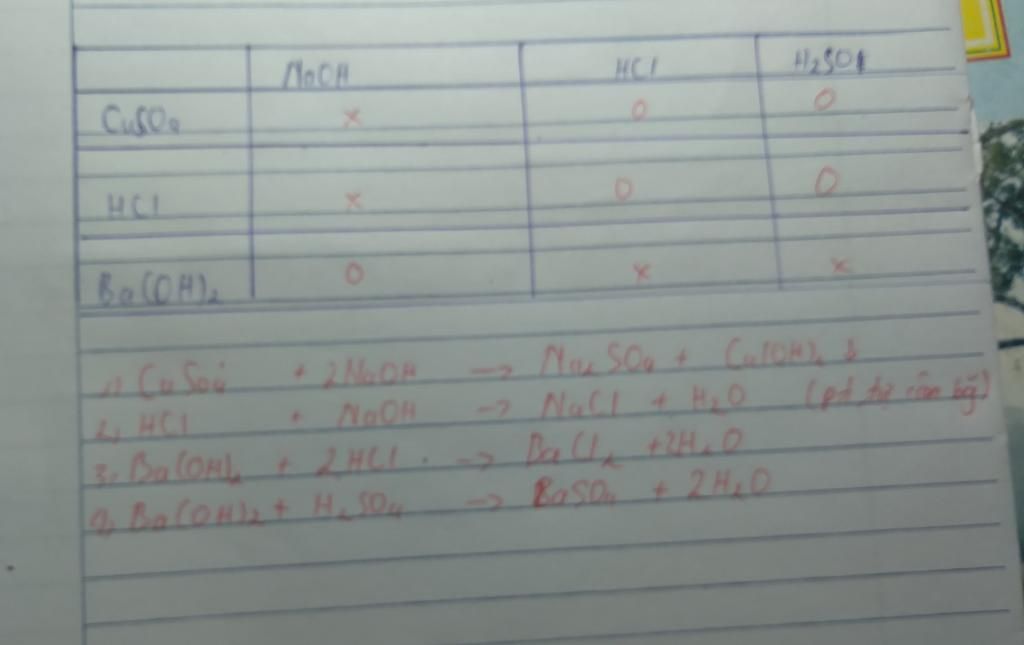 NaOH HCl H₂SO₄
CuSO₄ x 0 0
HCl x 0 0
Ba(OH)₂ 0 x x
1) CuSO₄ + 2NaOH → Na₂SO₄ + Cu(OH)₂ ↓
2, HCl + NaOH → NaCl + H₂O (pt tự cân bg̃)
3, Ba(OH)₂ + 2HCl → BaCl₂ + 2H₂O
4, Ba(OH)₂ + H₂SO₄ → BaSO₄ + 2H₂O